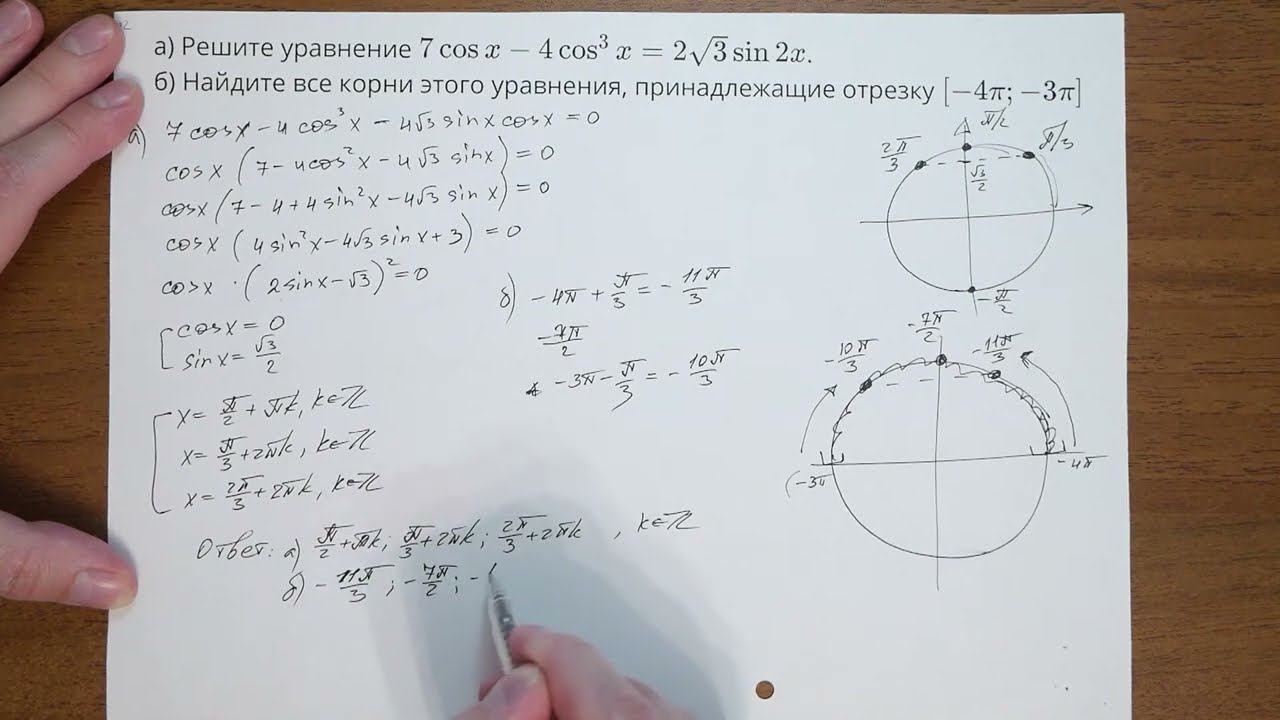 а) Решите уравнение 7 cos x − 4 cos³ x = 2√3 sin 2x.
б) Найдите все корни этого уравнения, принадлежащие отрезку [−4π; −3π]
а) 7 cosx − 4 cos³x − 4√3 sinx cosx = 0
cosx (7 − 4cos²x − 4√3 sinx) = 0
cosx (7 − 4 + 4 sin²x − 4√3 sin x) = 0
cosx (4 sin²x − 4√3 sinx + 3) = 0
cosx · (2 sinx − √3)² = 0
cosx = 0
sinx = √3/2
x = π/2 + πk, k∈ℤ
x = π/3 + 2πk, k∈ℤ
x = 2π/3 + 2πk, k∈ℤ
б) −4π + π/3 = −11π/3
−7π/2
−3π − π/3 = −10π/3
π/2
2π/3
π/3
√3/2
−π/2
−7π/2
−10π/3
−11π/3
−3π
−4π
Ответ: а) π/2 + πk; π/3 + 2πk; 2π/3 + 2πk, k∈ℤ
б) −11π/3; −7π/2; −